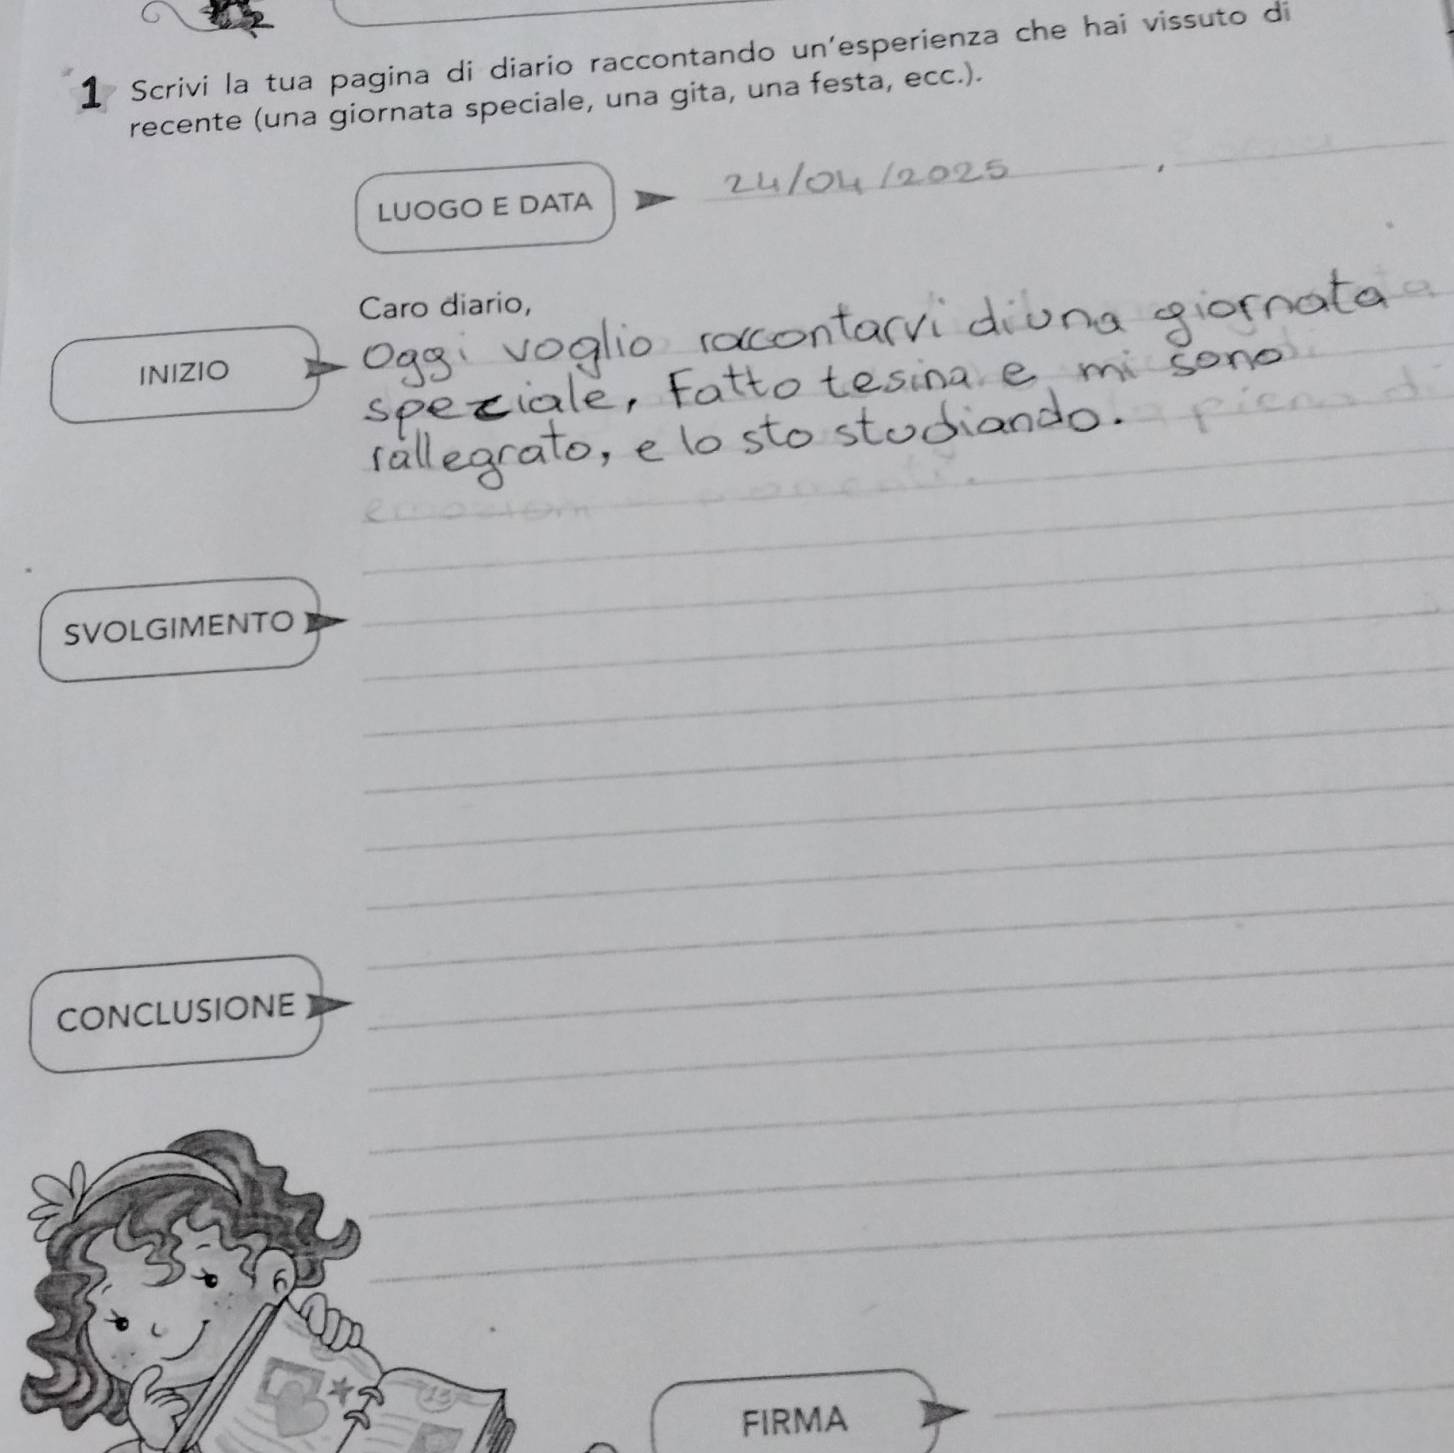 1 Scrivi la tua pagina di diario raccontando un'esperienza che hai vissuto di
recente (una giornata speciale, una gita, una festa, ecc.).
LUOGO E DATA
24/04/2025 ,
Caro diario,
INIZIO
Oggi voglio raccontarvi di una giornata
speziale, Fatto tesina e mi sono
rallegrato, e lo sto studiando.
SVOLGIMENTO
CONCLUSIONE
13
FIRMA